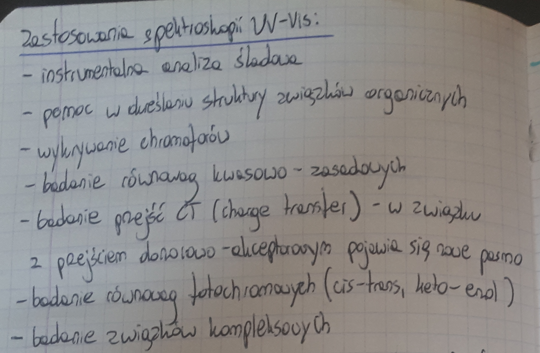 Zastosowania spektroskopii UV-Vis:
- instrumentalna analiza śladowa
- pomoc w określaniu struktury związków organicznych
- wykrywanie chromoforów
- badanie równowag kwasowo-zasadowych
- badanie przejść CT (charge transfer) - w związku
z przejściem donorowo-akceptorowym pojawia się nowe pasmo
- badanie równowag fotochromowych (cis-trans, keto-enol)
- badanie związków kompleksowych